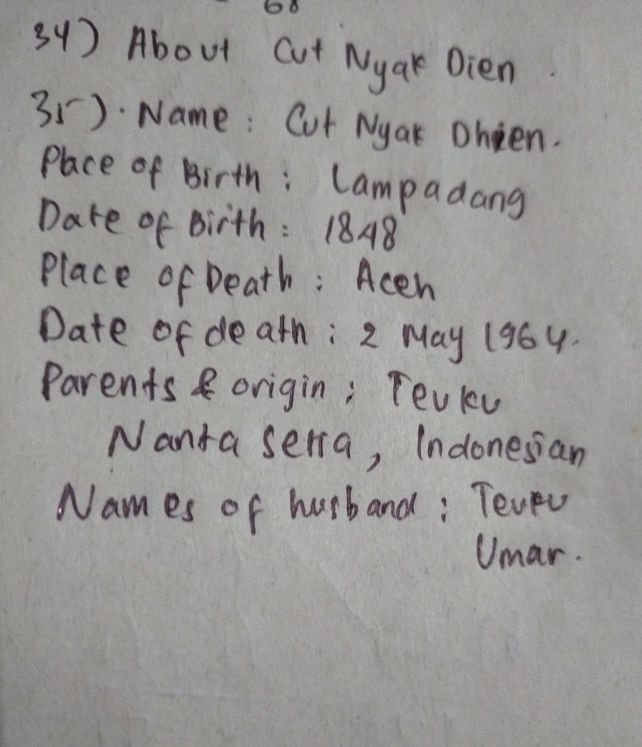 68
34) About Cut Nyak Dien.
35). Name: Cut Nyak Dhien.
Place of Birth: Lampadang
Date of Birth: 1848
Place of Death: Aceh
Date of death: 2 May 1964.
Parents & origin; Teuku
Nanta Setia, Indonesian
Names of husband; Teuku
Umar.